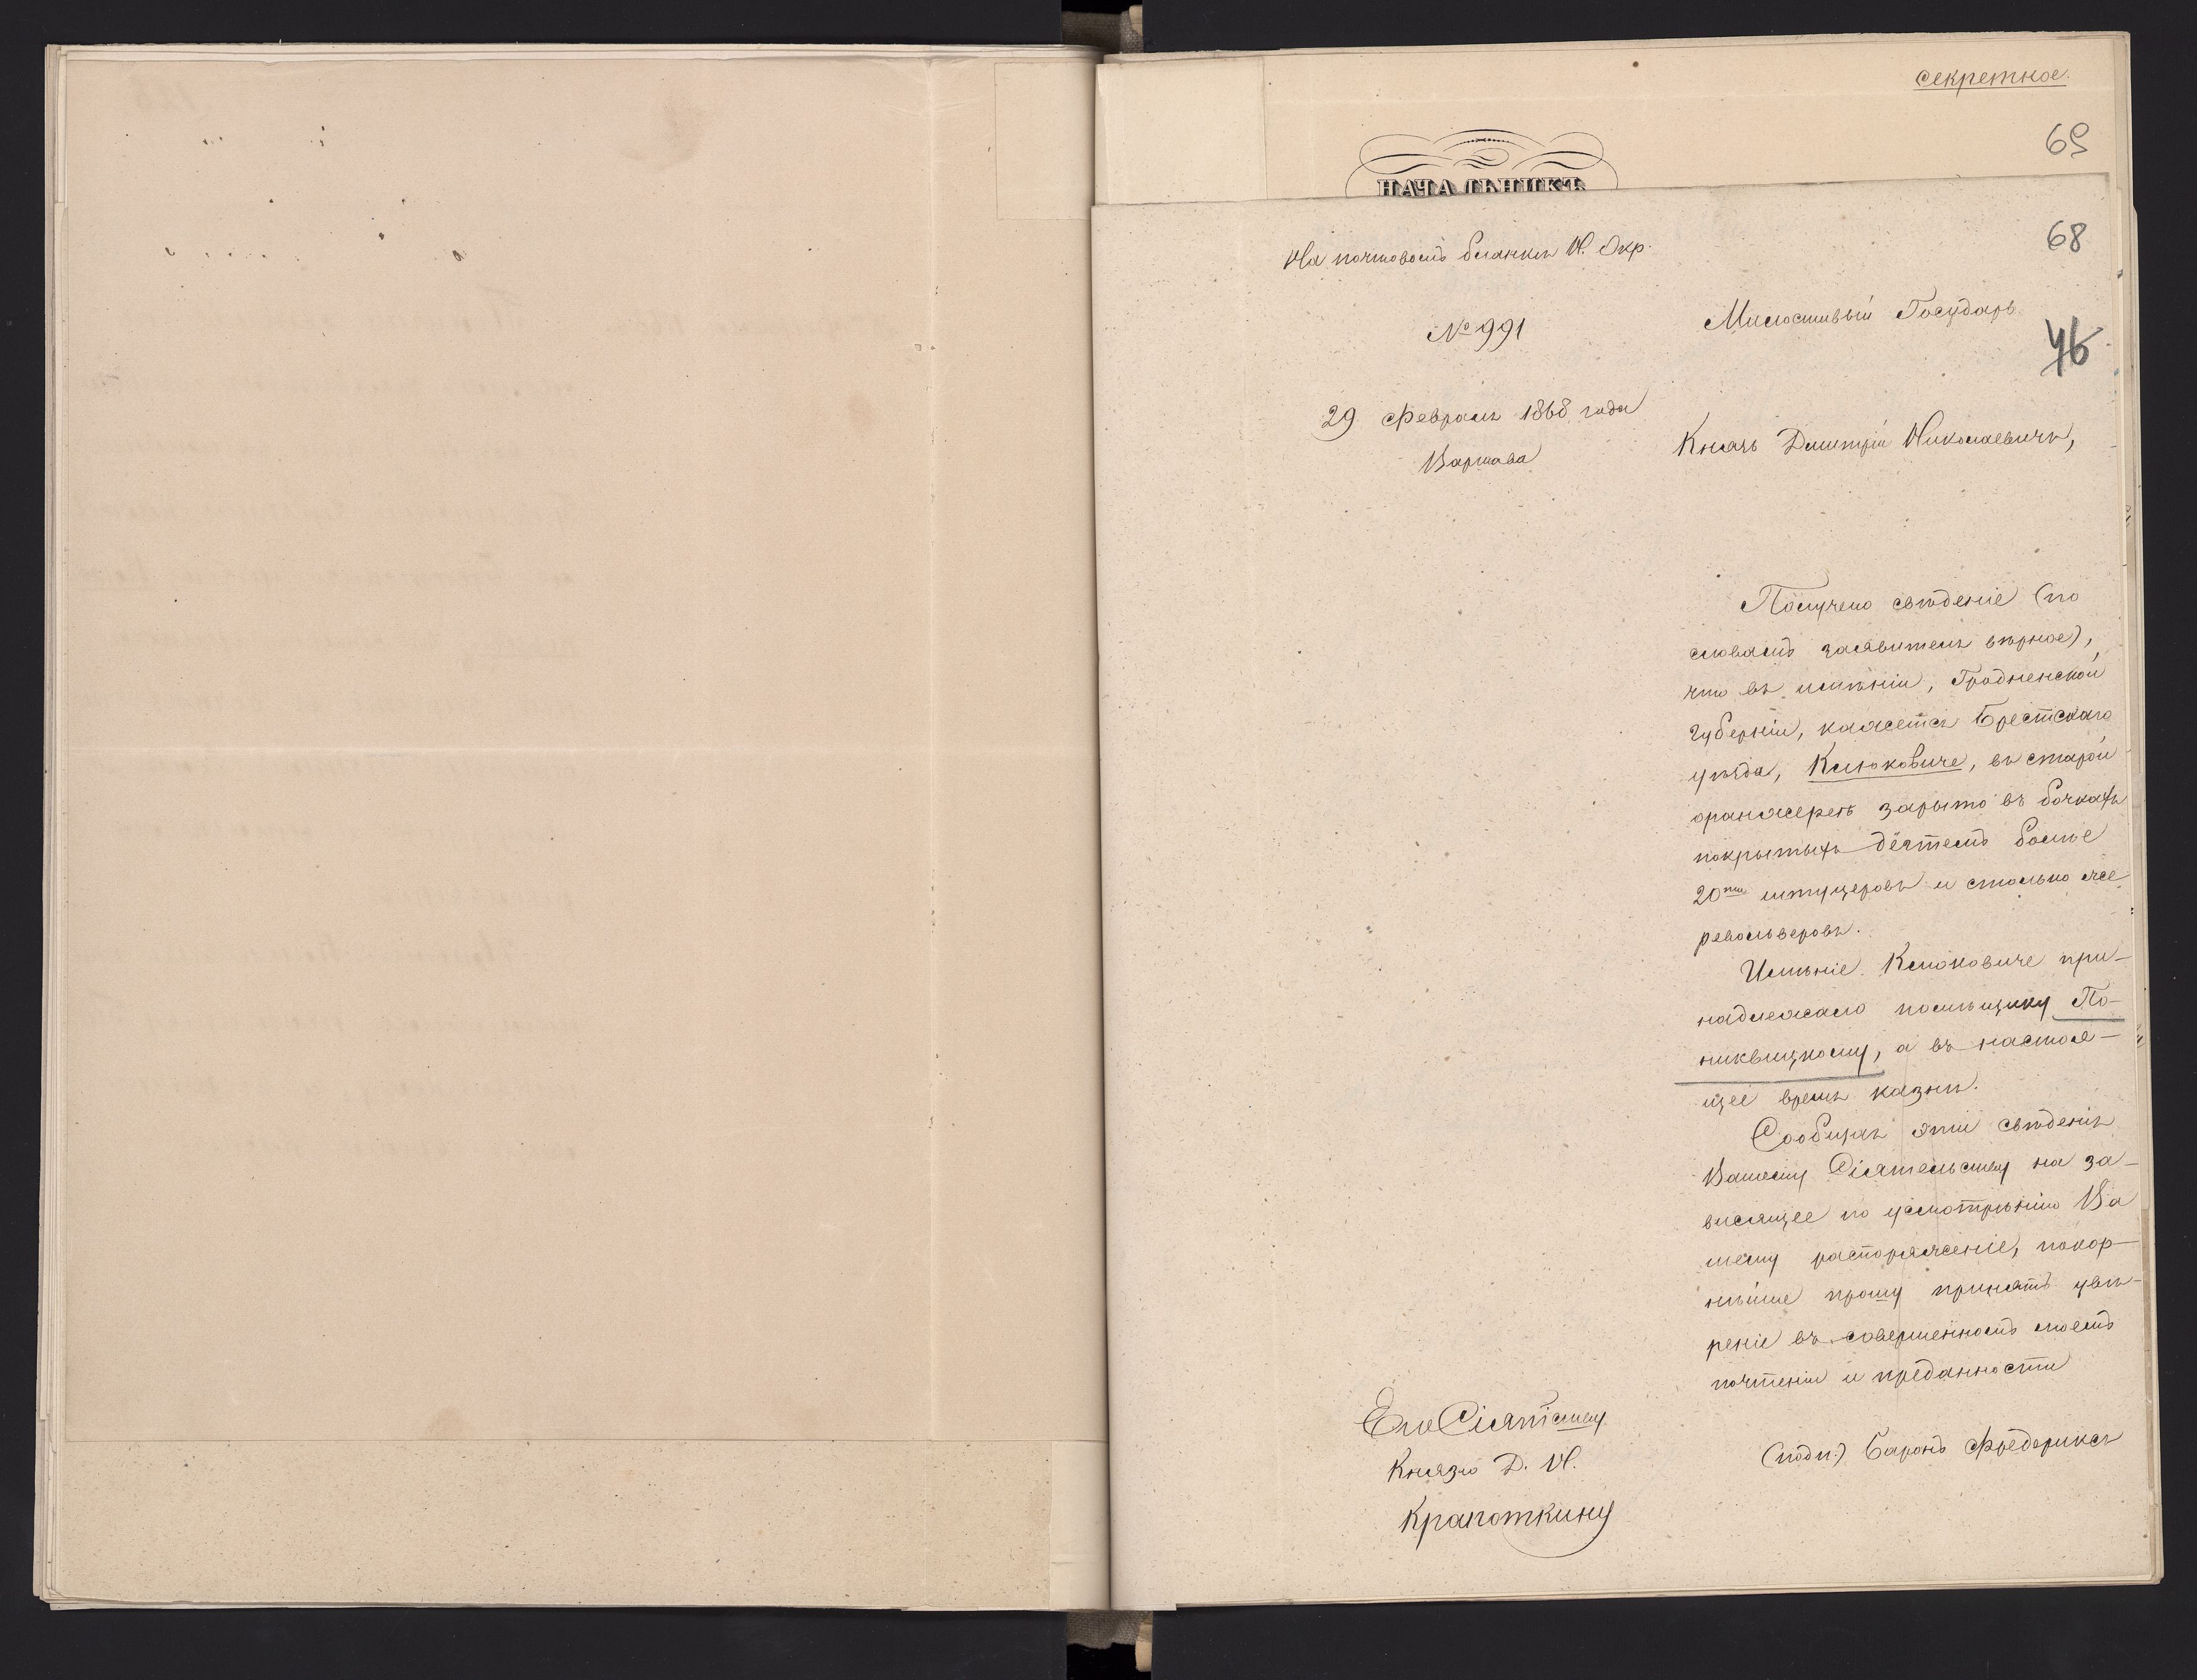 Секретное.
69
НАЧАЛЬНИКЪ
68
На почтовомъ бланкѣ Н. Окр.
№ 991
Милостивый Государь
46
29 Февраля 1868 года
Варшава
Князь Дмитрій Николаевичъ,
Получено свѣденіе (по
словамъ заявителя вѣрное),
что въ имѣніи, Гродненской
губерніи, кажется Брестскаго
уѣзда, Клюковиче, въ старой
оранжереѣ зарыто въ бочкахъ
покрытыхъ дегтемъ болѣе
20ти штуцеровъ и столько же
револьверовъ.
Имѣніе Клюковиче при-
надлежало помѣщику По-
никвицкому, а въ настоя-
щее время казнѣ.
Сообщая эти свѣденія
Вашему Сіятельству на за-
висящее по усмотрѣнію Ва
шему распоряженіе, покор-
нѣйше прошу принять увѣ-
реніе въ совершенномъ моемъ
почтеніи и преданности
(подп.) Баронъ Фредериксъ
Его Сіятству
Князю Д. Н.
Крапоткину